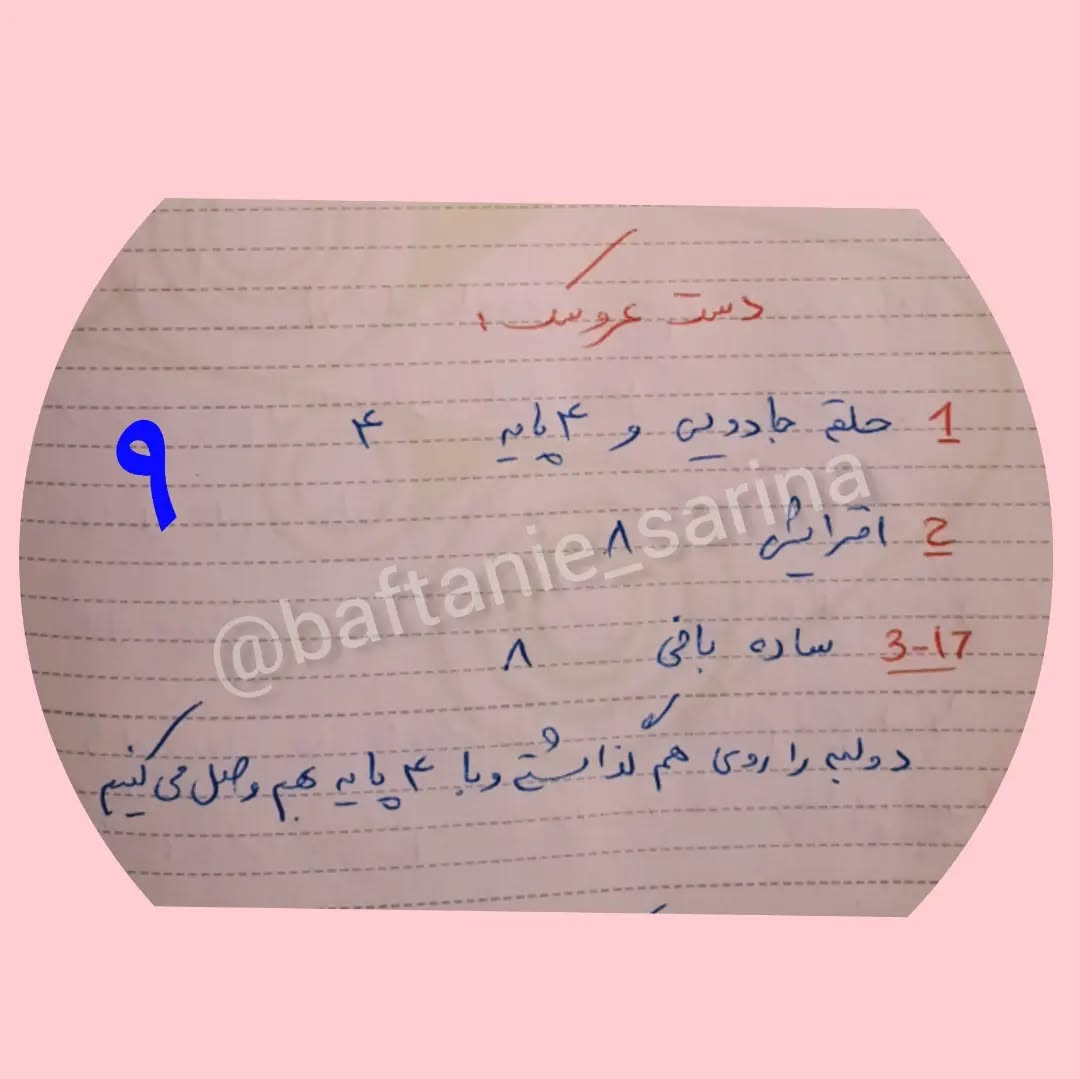 دست عروسک :
1 حلقه جادویی و ۴ پایه ۴
2 افزایش ۸
3-17 ساده بافی ۸
دولبه را روی هم گذاشته و با ۴ پایه بهم وصل می کنیم
۹
@baftanie_sarina